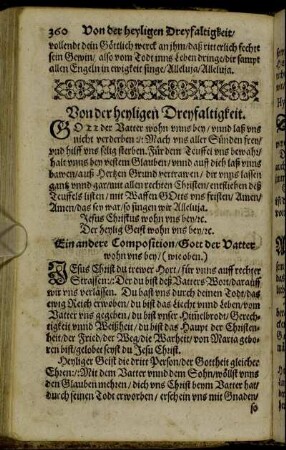 360 Von der heyligen Dreyfaltigkeit/
vollende dein Göttlich werck an jhm/ daß ritterlich fecht
sein Gewin/ also vom Todt inns Leben dringe/ dir sampt
allen Engeln in ewigkeit singe/ Alleluja/ Alleluja.
Von der heyligen Dreyfaltigkeit.
GOtt der Vatter wohn vnns bey/ vnnd laß vns
nicht verderben :/: Mach vns aller Sünden frey/
vnd hilff vns selig sterben. Für dem Teuffel vns bewahr/
halt vnns bey vestem Glauben/ vnnd auff dich laß vnns
bawen/ auß Hertzen Grund vertrawen/ dir vnns lassen
gantz vnnd gar/ mit allen rechten Christen/ entfliehen deß
Teuffels listen/ mit Waffen Gottes vns fristen/ Amen/
Amen/ das sey war/ so singen wir Alleluja.
Jesus Christus wohn vns bey/ etc.
Der heylig Geist wohn vns bey/ etc.
Ein andere Composition/ Gott der Vatter
wohn vns bey/ (wie oben.)
JEsus Christ du trewer Hort/ für vnns auff rechter
Strassen :/: Der du bist deß Vatters Wort/ darauff
wir vns verlassen. Du hast vns durch deinen Todt/ das
ewig Reich erworben/ du bist das Liecht vnnd Leben/ vom
Vatter vns gegeben/ du bist vnser Himelbrodt/ Gerech-
tigkeit vnnd Weißheit/ du bist das Haupt der Christen-
heit/ der Fried/ der Weg/ die Warheit/ von Maria gebo-
ren bist/ gelobet seyst du Jesu Christ.
Heyliger Geist die dritt Person/ der Gottheit gleicher
Ehren :/: Mit dem Vatter vnnd dem Sohn/ wöllst vnns
den Glauben mehren/ dich vns Christ beym Vatter hat/
durch seinen Todt erworben/ erschein vns mit Gnaden/
so